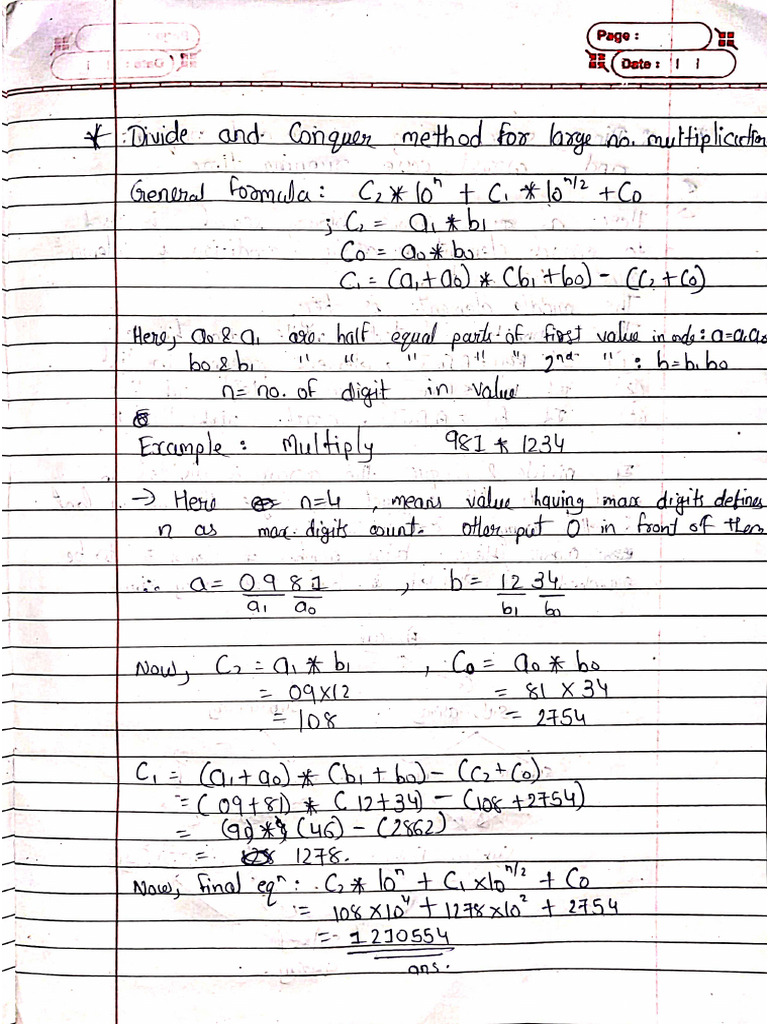 Page :
Date : | |
* Divide and Conquer method for large no. multiplication
General Formula: C₂ * 10ⁿ + C₁ * 10^(n/2) + C₀
; C₂ = a₁ * b₁
C₀ = a₀ * b₀
C₁ = (a₁ + a₀) * (b₁ + b₀) - (C₂ + C₀)
Here, a₀ & a₁ are half equal parts of first value in ode : a = a₁a₀
b₀ & b₁ " " " " " 2nd " : b = b₁b₀
n = no. of digit in value
Example : Multiply 981 * 1234
→ Here n=4 , means value having max digits defines
n as max digits count. Other put '0' in front of them
∴ a = 0981 , b = 1234
a₁ a₀ b₁ b₀
Now, C₂ = a₁ * b₁ , C₀ = a₀ * b₀
= 09 × 12 = 81 × 34
= 108 = 2754
C₁ = (a₁ + a₀) * (b₁ + b₀) - (C₂ + C₀)
= (09 + 81) * (12 + 34) - (108 + 2754)
= (90) * (46) - (2862)
= 1278.
Now, final eqⁿ : C₂ * 10ⁿ + C₁ × 10^(n/2) + C₀
= 108 × 10⁴ + 1278 × 10² + 2754
= 1210554
ans.